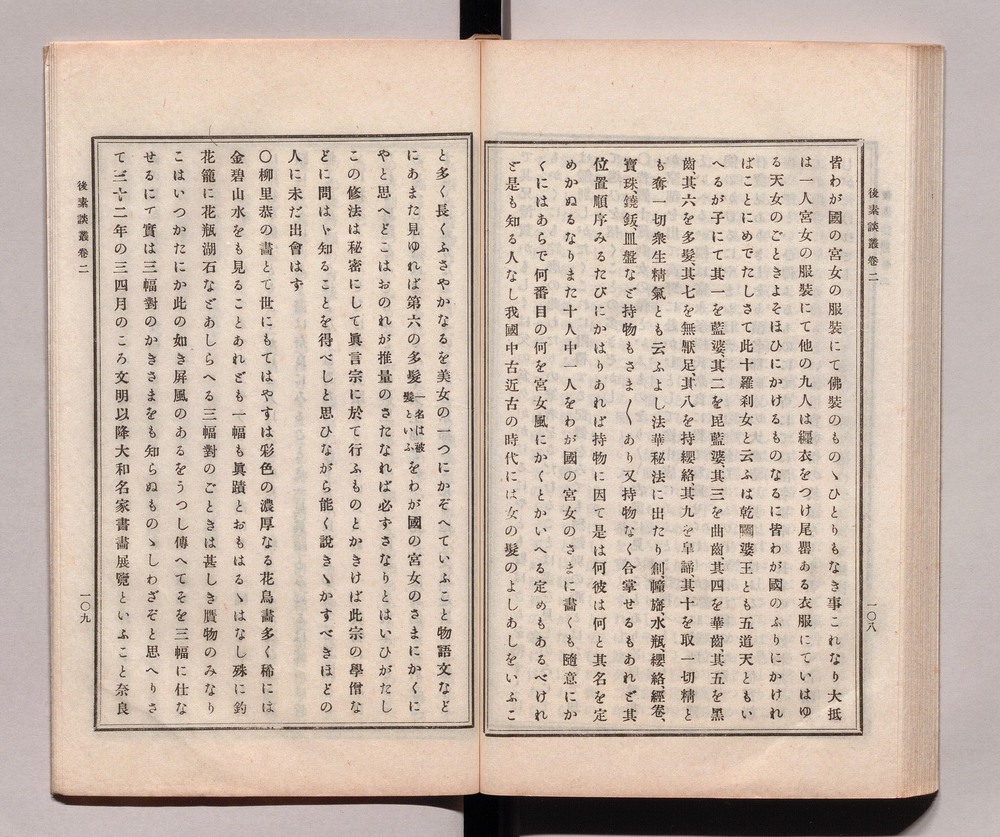 後素談叢卷二
一〇八
皆わが國の宮女の服裝にて佛裝のものヽひとりもなき事これなり大抵
は一人宮女の服裝にて他の九人は纒衣をつけ尾罌ある衣服にていはゆ
る天女のごときよそほひにかけるものなるに皆わが國のふりにかけれ
ばことにめでたしさて此十羅刹女と云ふは乾闥婆王とも五道天ともい
へるが子にて其一を藍婆、其二を毘藍婆、其三を曲齒、其四を華齒、其五を黑
齒、其六を多髮、其七を無厭足、其八を持纓絡其九を皐諦其十を取一切精と
も奪一切衆生精氣とも云ふよし法華秘法に出たり劍、幢旛、水瓶、纓絡經卷、
寶珠、鐃鈸、皿盤など持物もさま〱あり又持物なく合掌せるもあれど其
位置順序みるたびにかはりあれば持物に因て是は何彼は何と其名を定
めかぬるなりまた十人中一人をわが國の宮女のさまに畵くも隨意にか
くにはあらで何番目の何を宮女風にかくとかいへる定めもあるべけれ
ど是も知る人なし我國中古近古の時代には女の髮のよしあしをいふこ
と多く長くふさやかなるを美女の一つにかぞへていふこと物語文など
にあまた見ゆれば第六の多髮一名は被髮といふをわが國の宮女のさまにかくに
やと思へどこはおのれが推量のさたなれば必ずさなりとはいひがたし
この修法は秘密にして眞言宗に於て行ふものとかきけば此宗の學僧な
どに問はヾ知ることを得べしと思ひながら能く說きヽかすべきほどの
人に未だ出會はず
〇柳里恭の畵とて世にもてはやすは彩色の濃厚なる花鳥畵多く稀には
金碧山水をも見ることあれども一幅も眞蹟とおもはるヽはなし殊に釣
花籠に花瓶湖石などあしらへる三幅對のごときは甚しき贋物のみなり
こはいつかたにか此の如き屏風のあるをうつし傳へてそを三幅に仕な
せるにて實は三幅對のかきさまをも知らぬものヽしわざぞと思へりさ
て三十二年の三四月のころ文明以降大和名家書畵展覽といふこと奈良
後素談叢卷二
一〇九